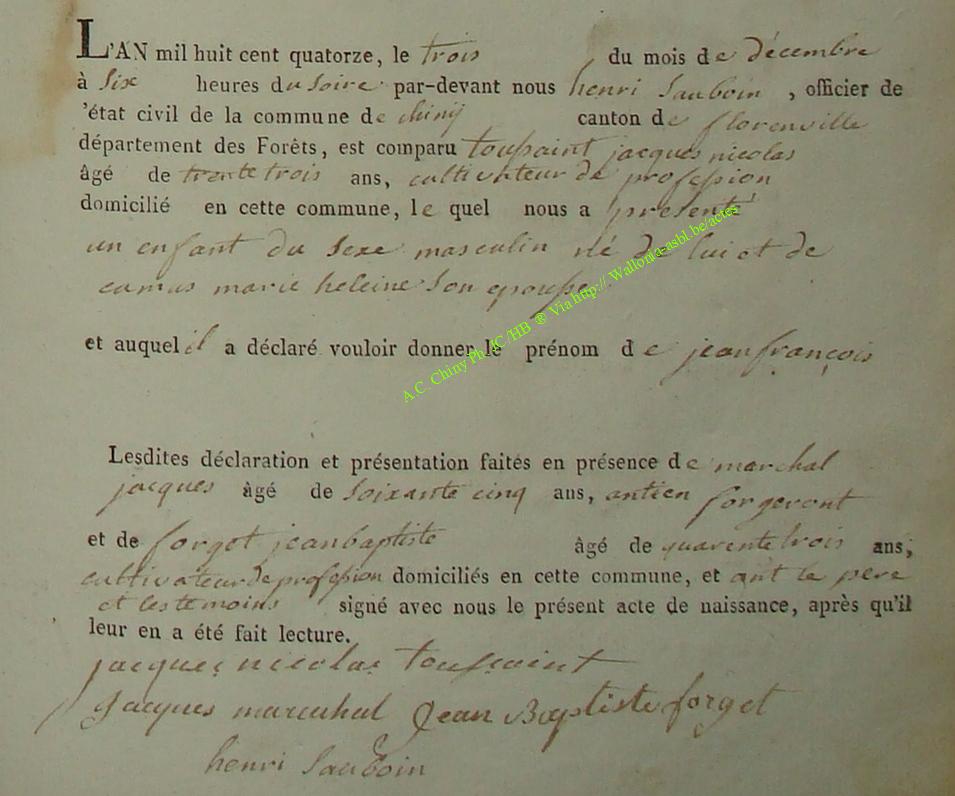 L'AN mil huit cent quatorze, le trois du mois de décembre
à six heures du soire par-devant nous henri Sauboin, officier de
'état civil de la commune de chinÿ canton de florenville
département des Forêts, est comparu toussaint jacques nicolas
âgé de trente trois ans, cultivateur de profession
domicilié en cette commune, le quel nous a présenté
un enfant du sexe masculin né de lui et de
camus marie heleine son epousse
et auquel il a déclaré vouloir donner le prénom de jean françois
Lesdites déclaration et présentation faites en présence de marchal
jacques âgé de soixante cinq ans, antien forgeront
et de forget jean baptiste âgé de quarente trois ans,
cultivateur de profession domiciliés en cette commune, et ont le pere
et les temoins signé avec nous le présent acte de naissance, après qu'il
leur en a été fait lecture.
jacques nicolas toussaint
jacques marechal Jean Baptiste forget
henri Sauboin
A.C. Chiny Ph. JC /HB ® Via http:// Wallonia-asbl.be/actes